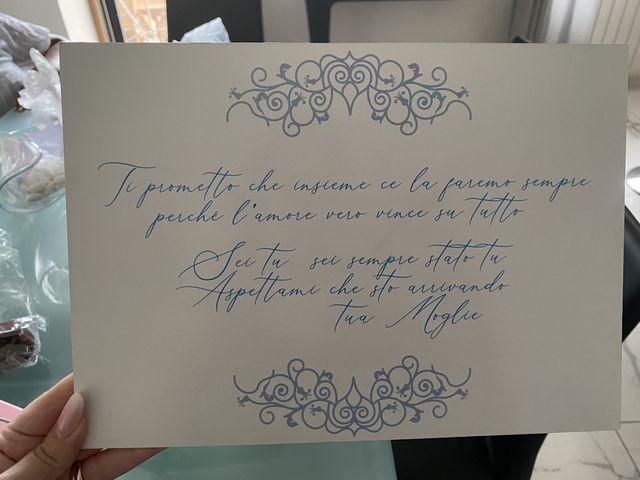 Ti prometto che insieme ce la faremo sempre
perché l'amore vero vince su tutto
Sei tu sei sempre stato tu
Aspettami che sto arrivando
tua Moglie